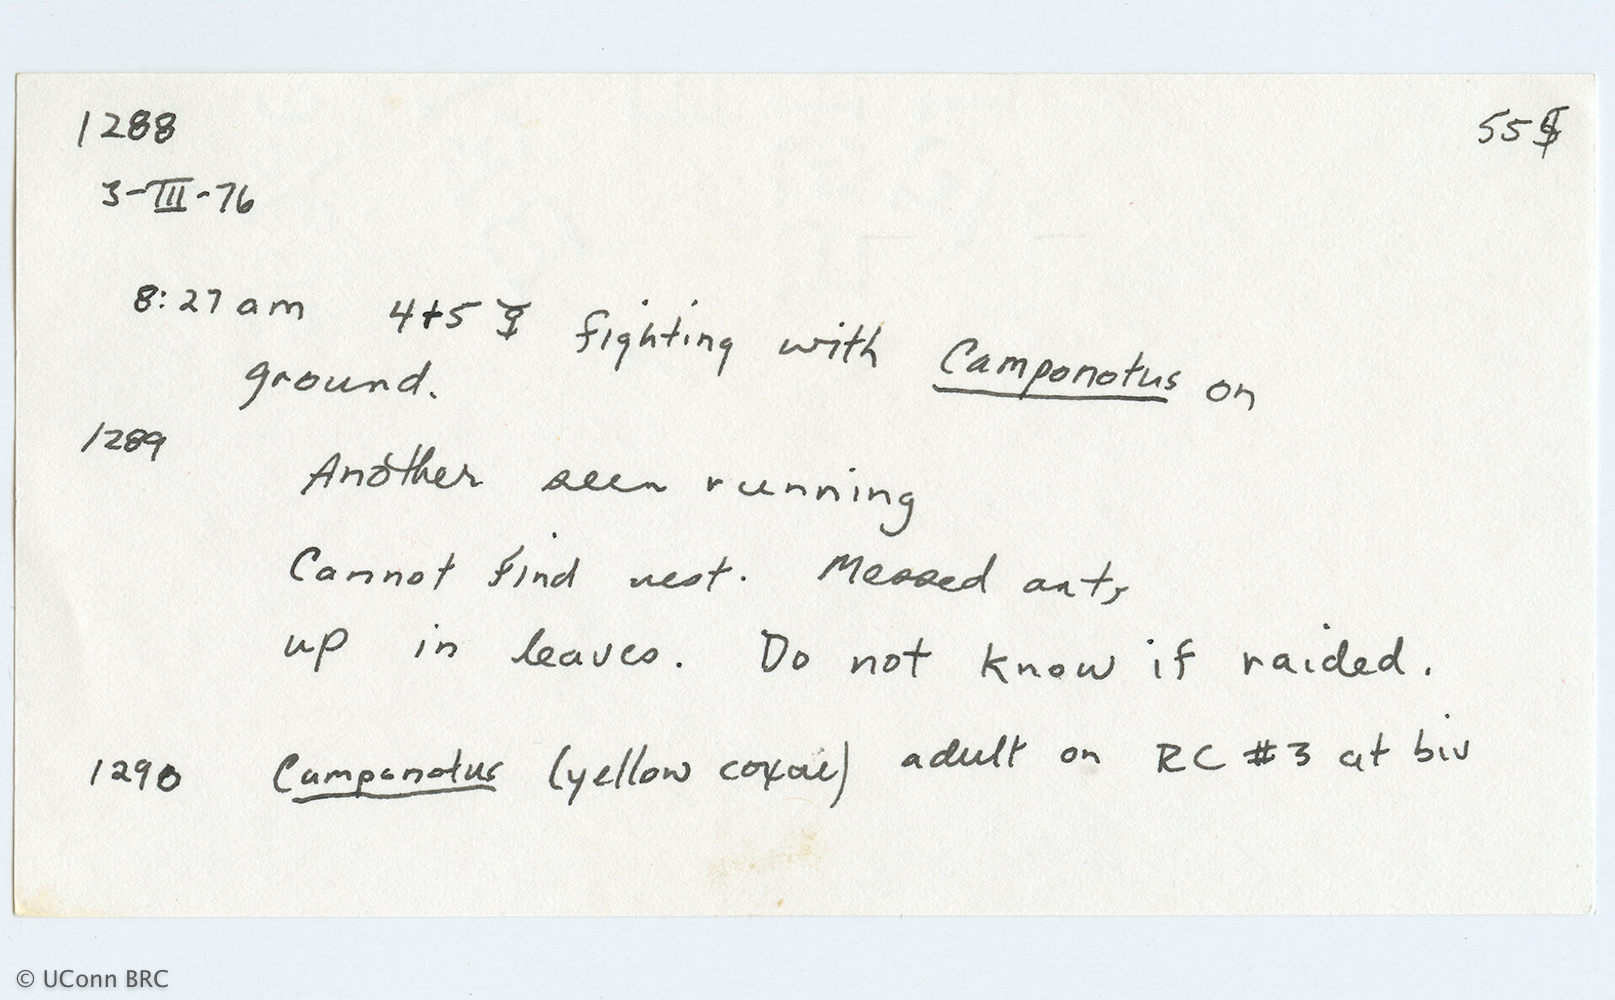 1288 55
3-III-76
8:27 am 4+5 ☿ fighting with Camponotus on
ground.
1289
Another seen running
Cannot find nest. Messed ants
up in leaves. Do not know if raided.
1290 Camponotus (yellow coxae) adult on RC #3 at biv
© UConn BRC